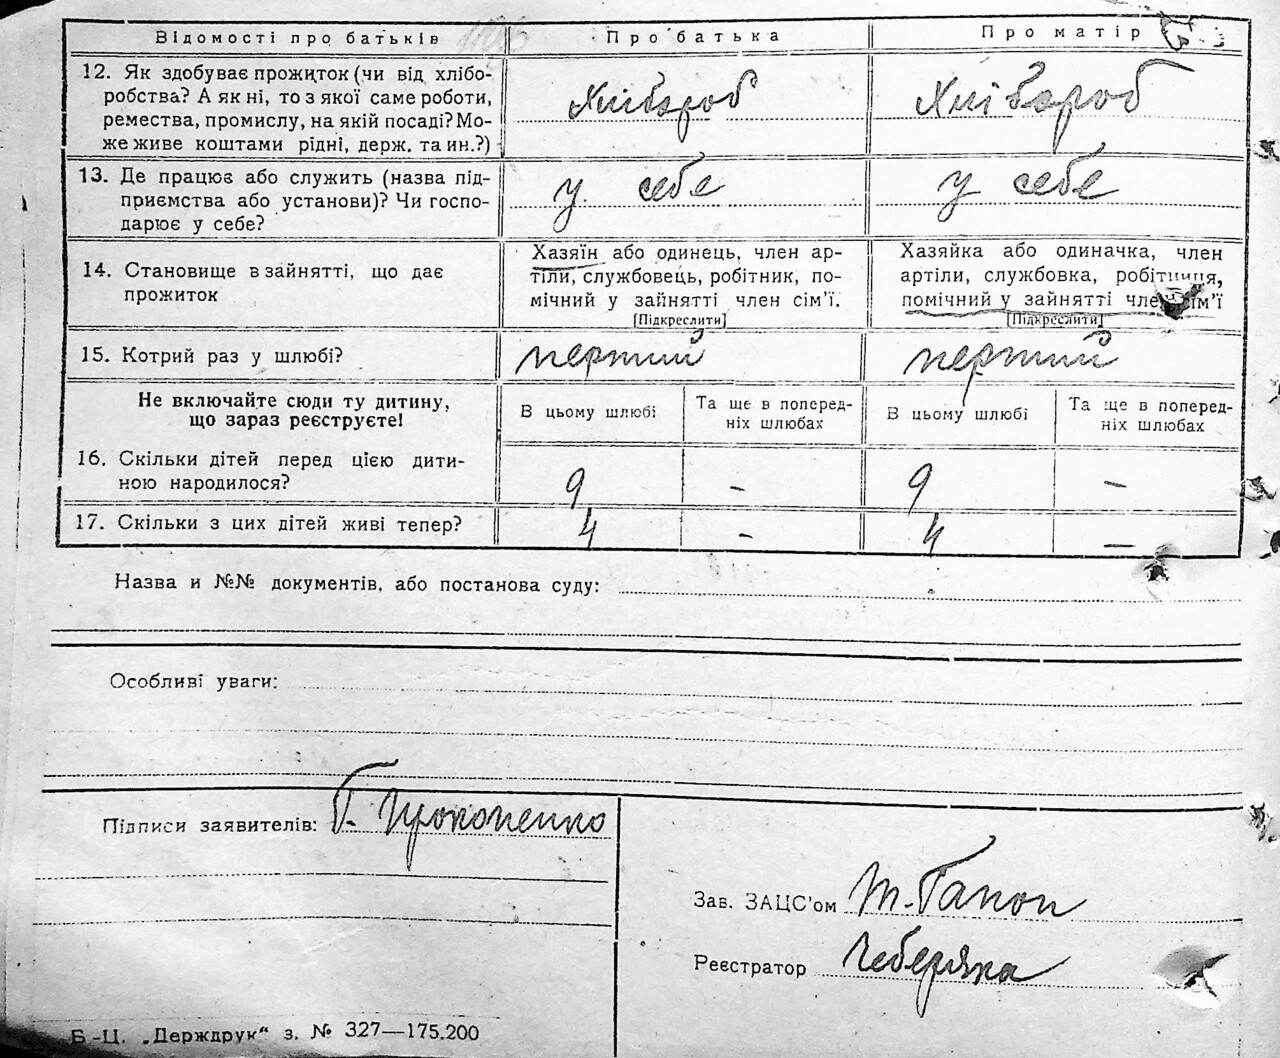 Відомості про батьків Про батька Про матір
12. Як здобуває прожиток (чи від хлібо-
робства? А як ні, то з якої саме роботи,
ремества, промислу, на якій посаді? Мо-
же живе коштами рідні, держ. та ин.?)
Хлібороб Хлібороб
13. Де працює або служить (назва під-
приємства або установи)? Чи госпо-
дарює у себе?
у себе у себе
14. Становище в зайнятті, що дає
прожиток
Хазяїн або одинець, член ар-
тіли, службовець, робітник, по-
мічний у зайнятті член сім'ї.
[Підкреслити]
Хазяйка або одиначка, член
артіли, службовка, робітниця,
помічний у зайнятті член сім'ї
[Підкреслити]
15. Котрий раз у шлюбі? перший перший
Не включайте сюди ту дитину,
що зараз реєструєте!
В цьому шлюбі
Та ще в поперед-
ніх шлюбах
В цьому шлюбі
Та ще в поперед-
ніх шлюбах
16. Скільки дітей перед цією дити-
ною народилося?
9 - 9 -
17. Скільки з цих дітей живі тепер? 4 - 4 -
Назва и №№ документів, або постанова суду:
Особливі уваги:
Підписи заявителів: Г. Прокопенко
Зав. ЗАЦС'ом Т. Гапон
Реєстратор Чеберяка
Б-Ц. „Держдрук" з. № 327—175.200